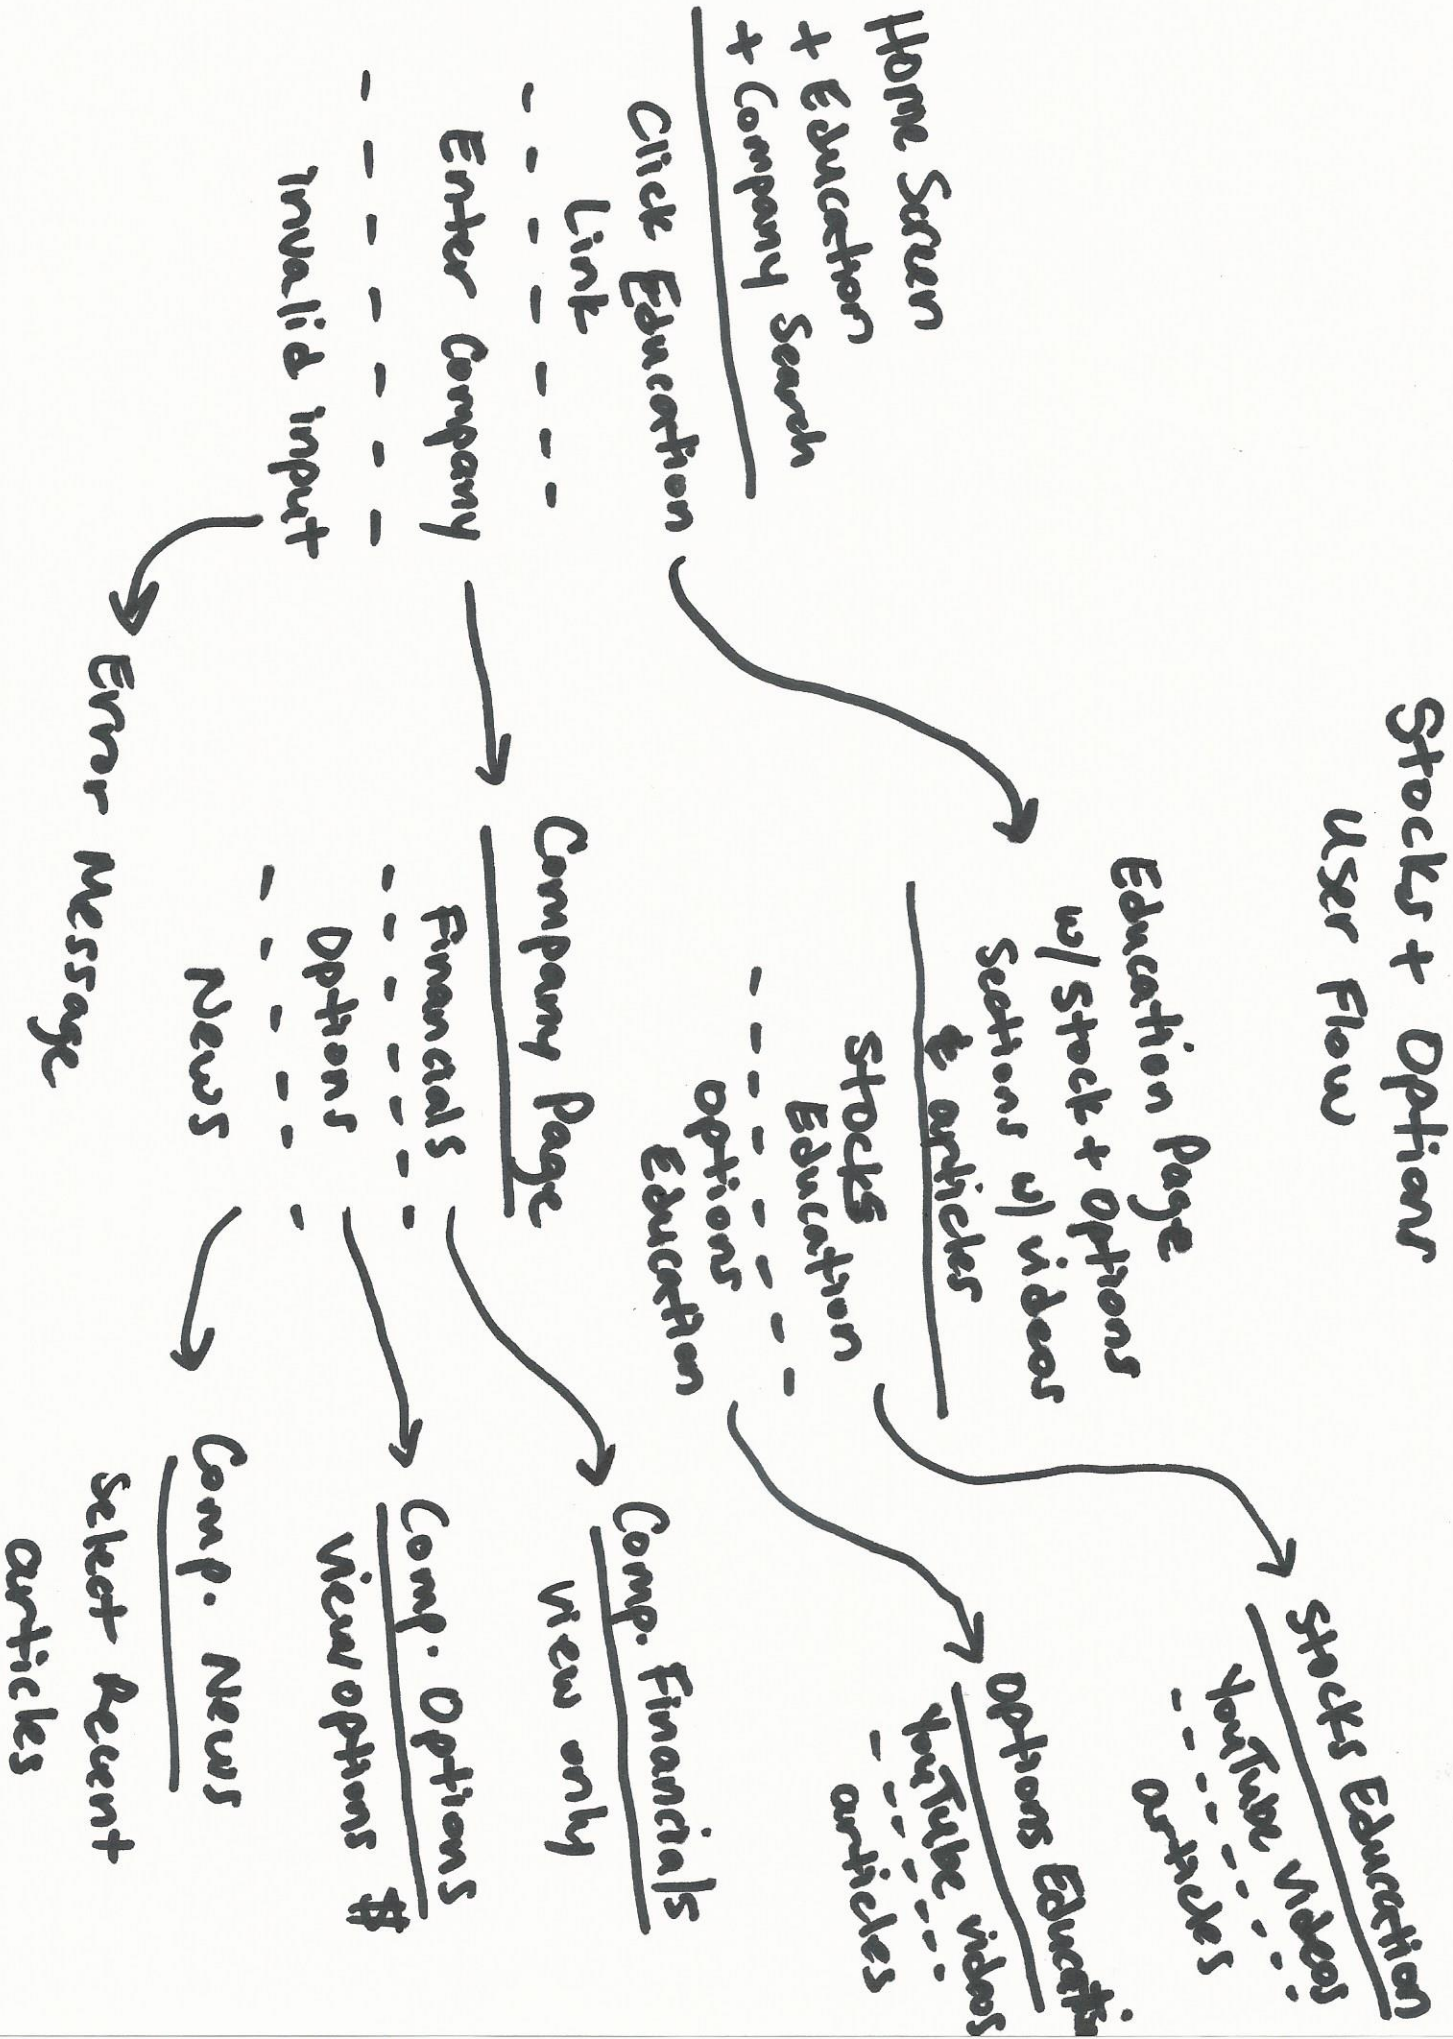 Stocks + Options
User Flow
Home Screen
+ Education
+ Company Search
Click Education
Link
Enter Company
Invalid input
Error Message
Education Page
w/ Stock + Options
Sections w/ videos
& articles
Stocks
Education
Options
Education
Stocks Education
YouTube videos
articles
Options Education
YouTube videos
articles
Company Page
Financials
Options
News
Comp. Financials
View only
Comp. Options
View options $
Comp. News
Select Recent
articles